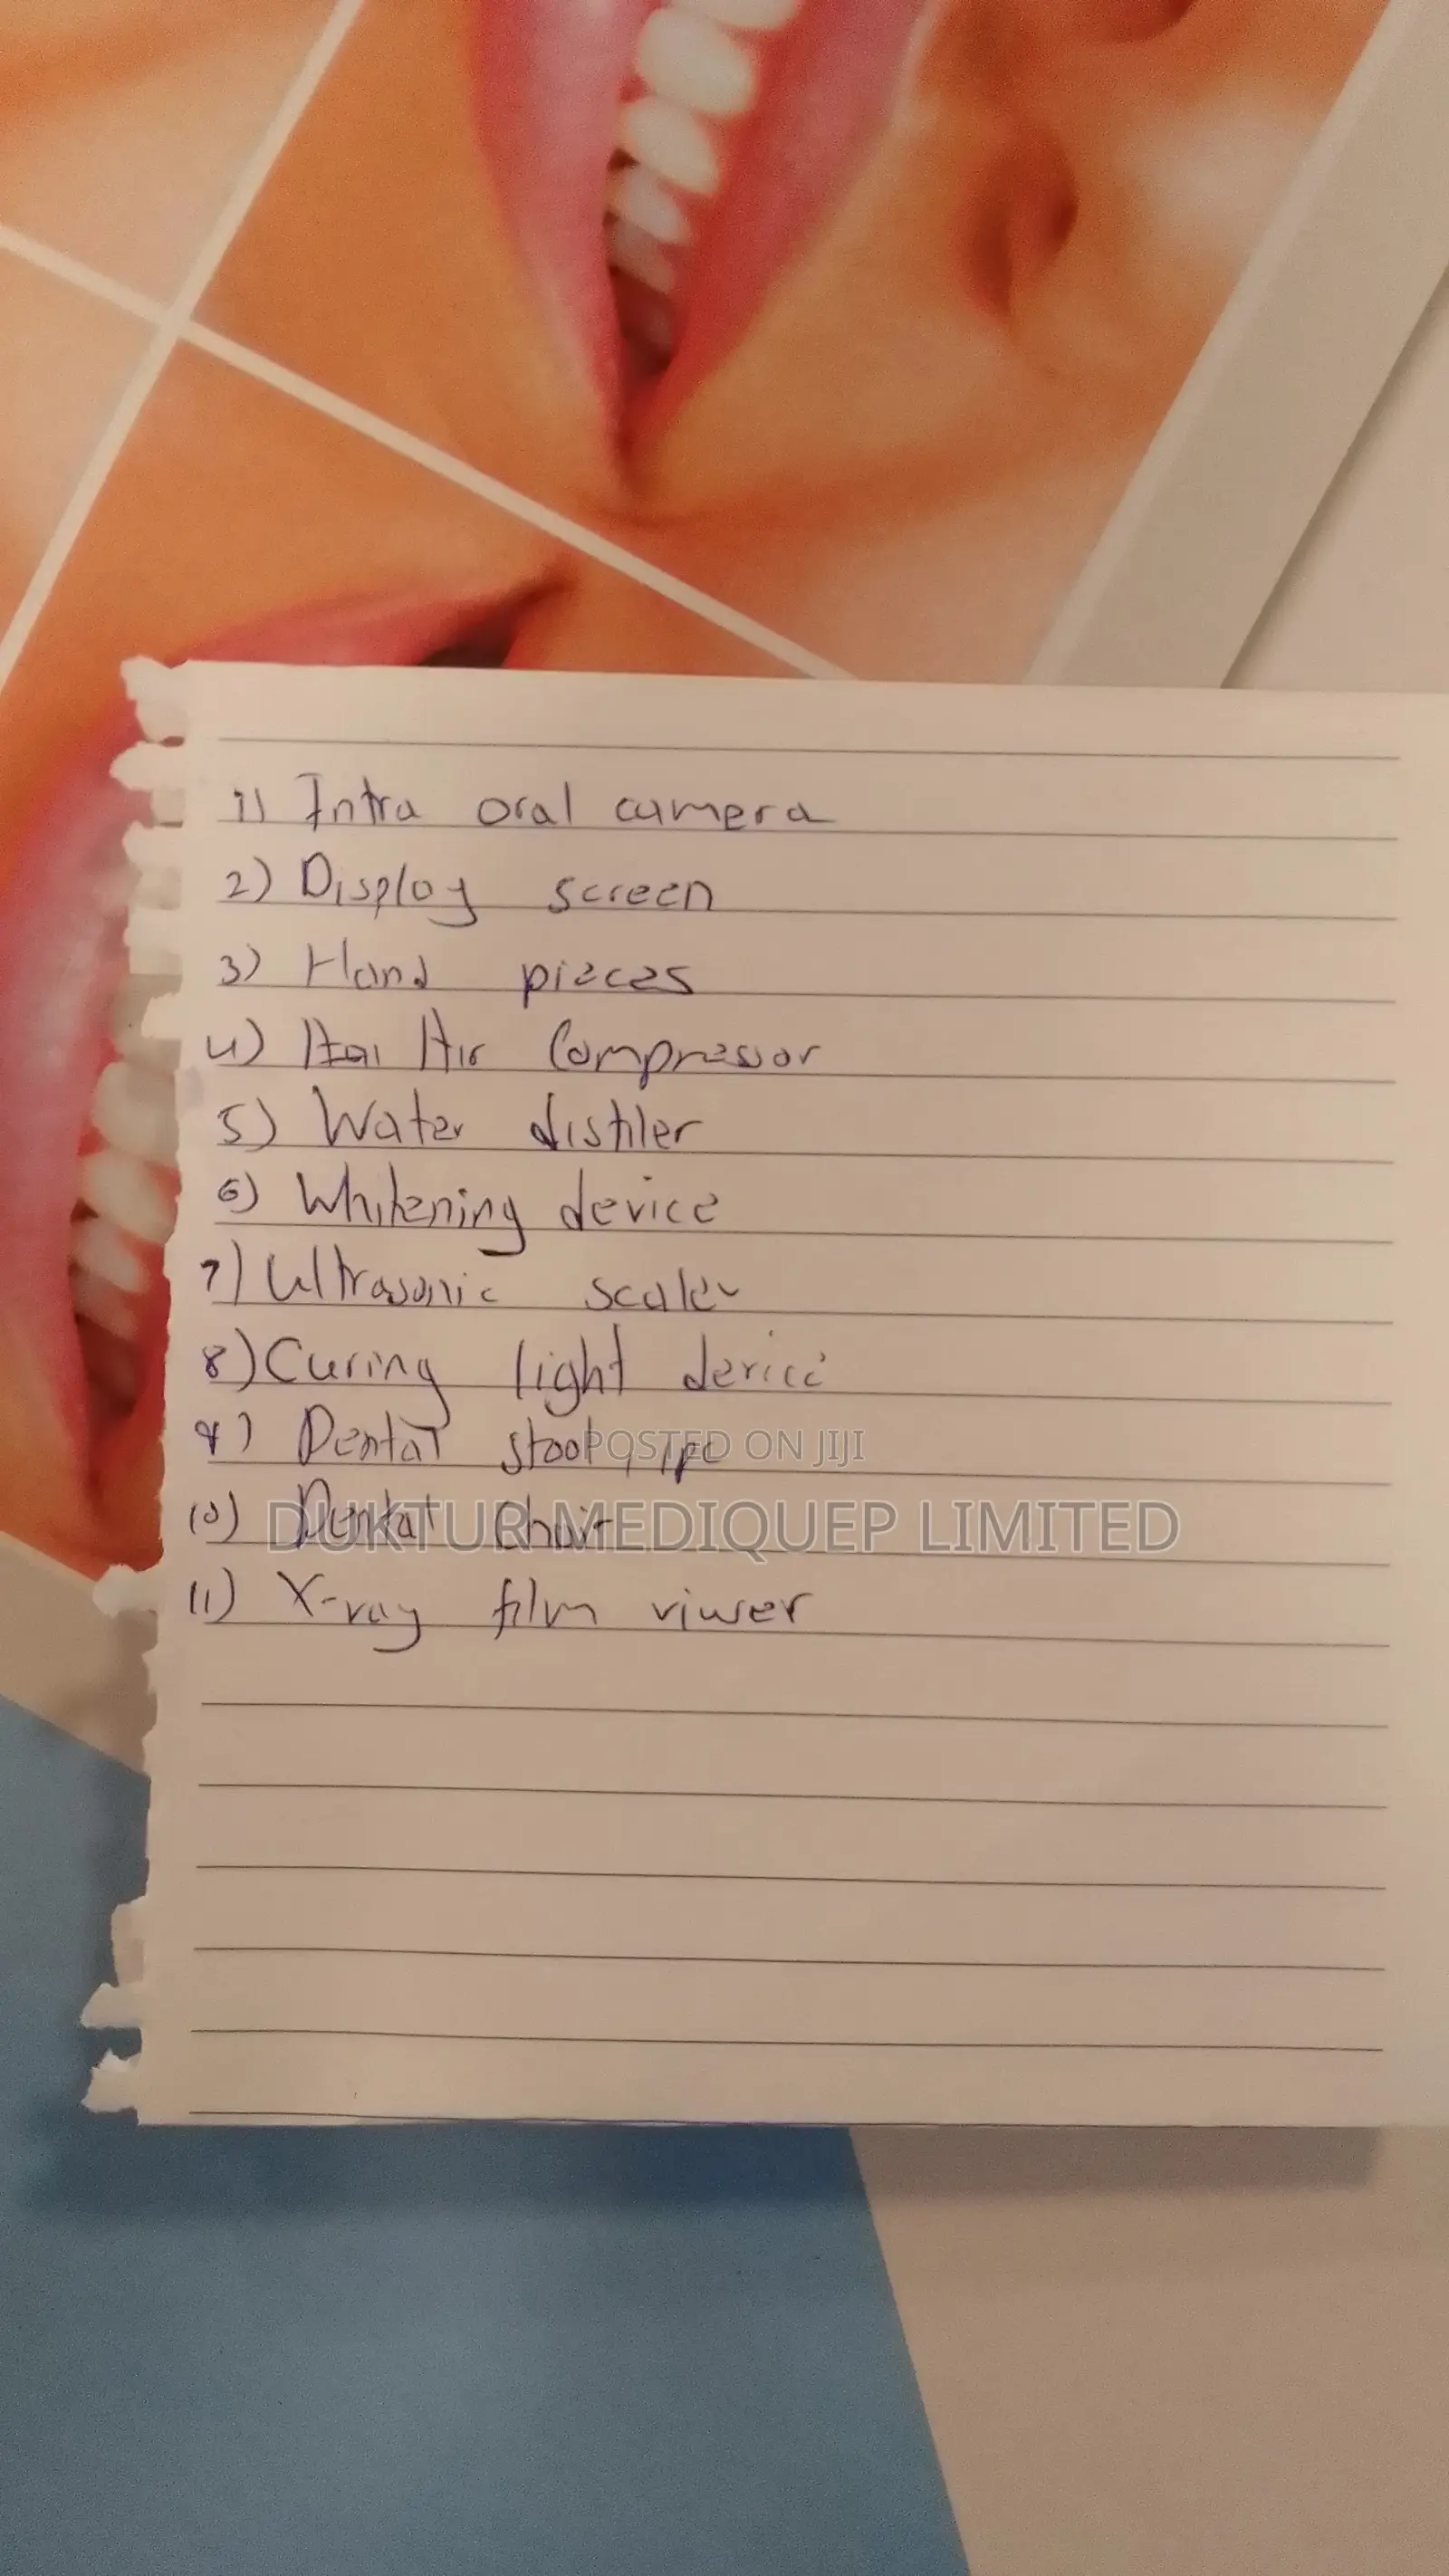 1) Intra oral camera
2) Display screen
3) Hand pieces
4) Air Compressor
5) Water distiler
6) Whitening device
7) Ultrasonic scaler
8) Curing light device
9) Dental stool, 1pc
POSTED ON JIJI
10) Dental Chair
DUKTUR MEDIQUEP LIMITED
11) X-ray film viwer